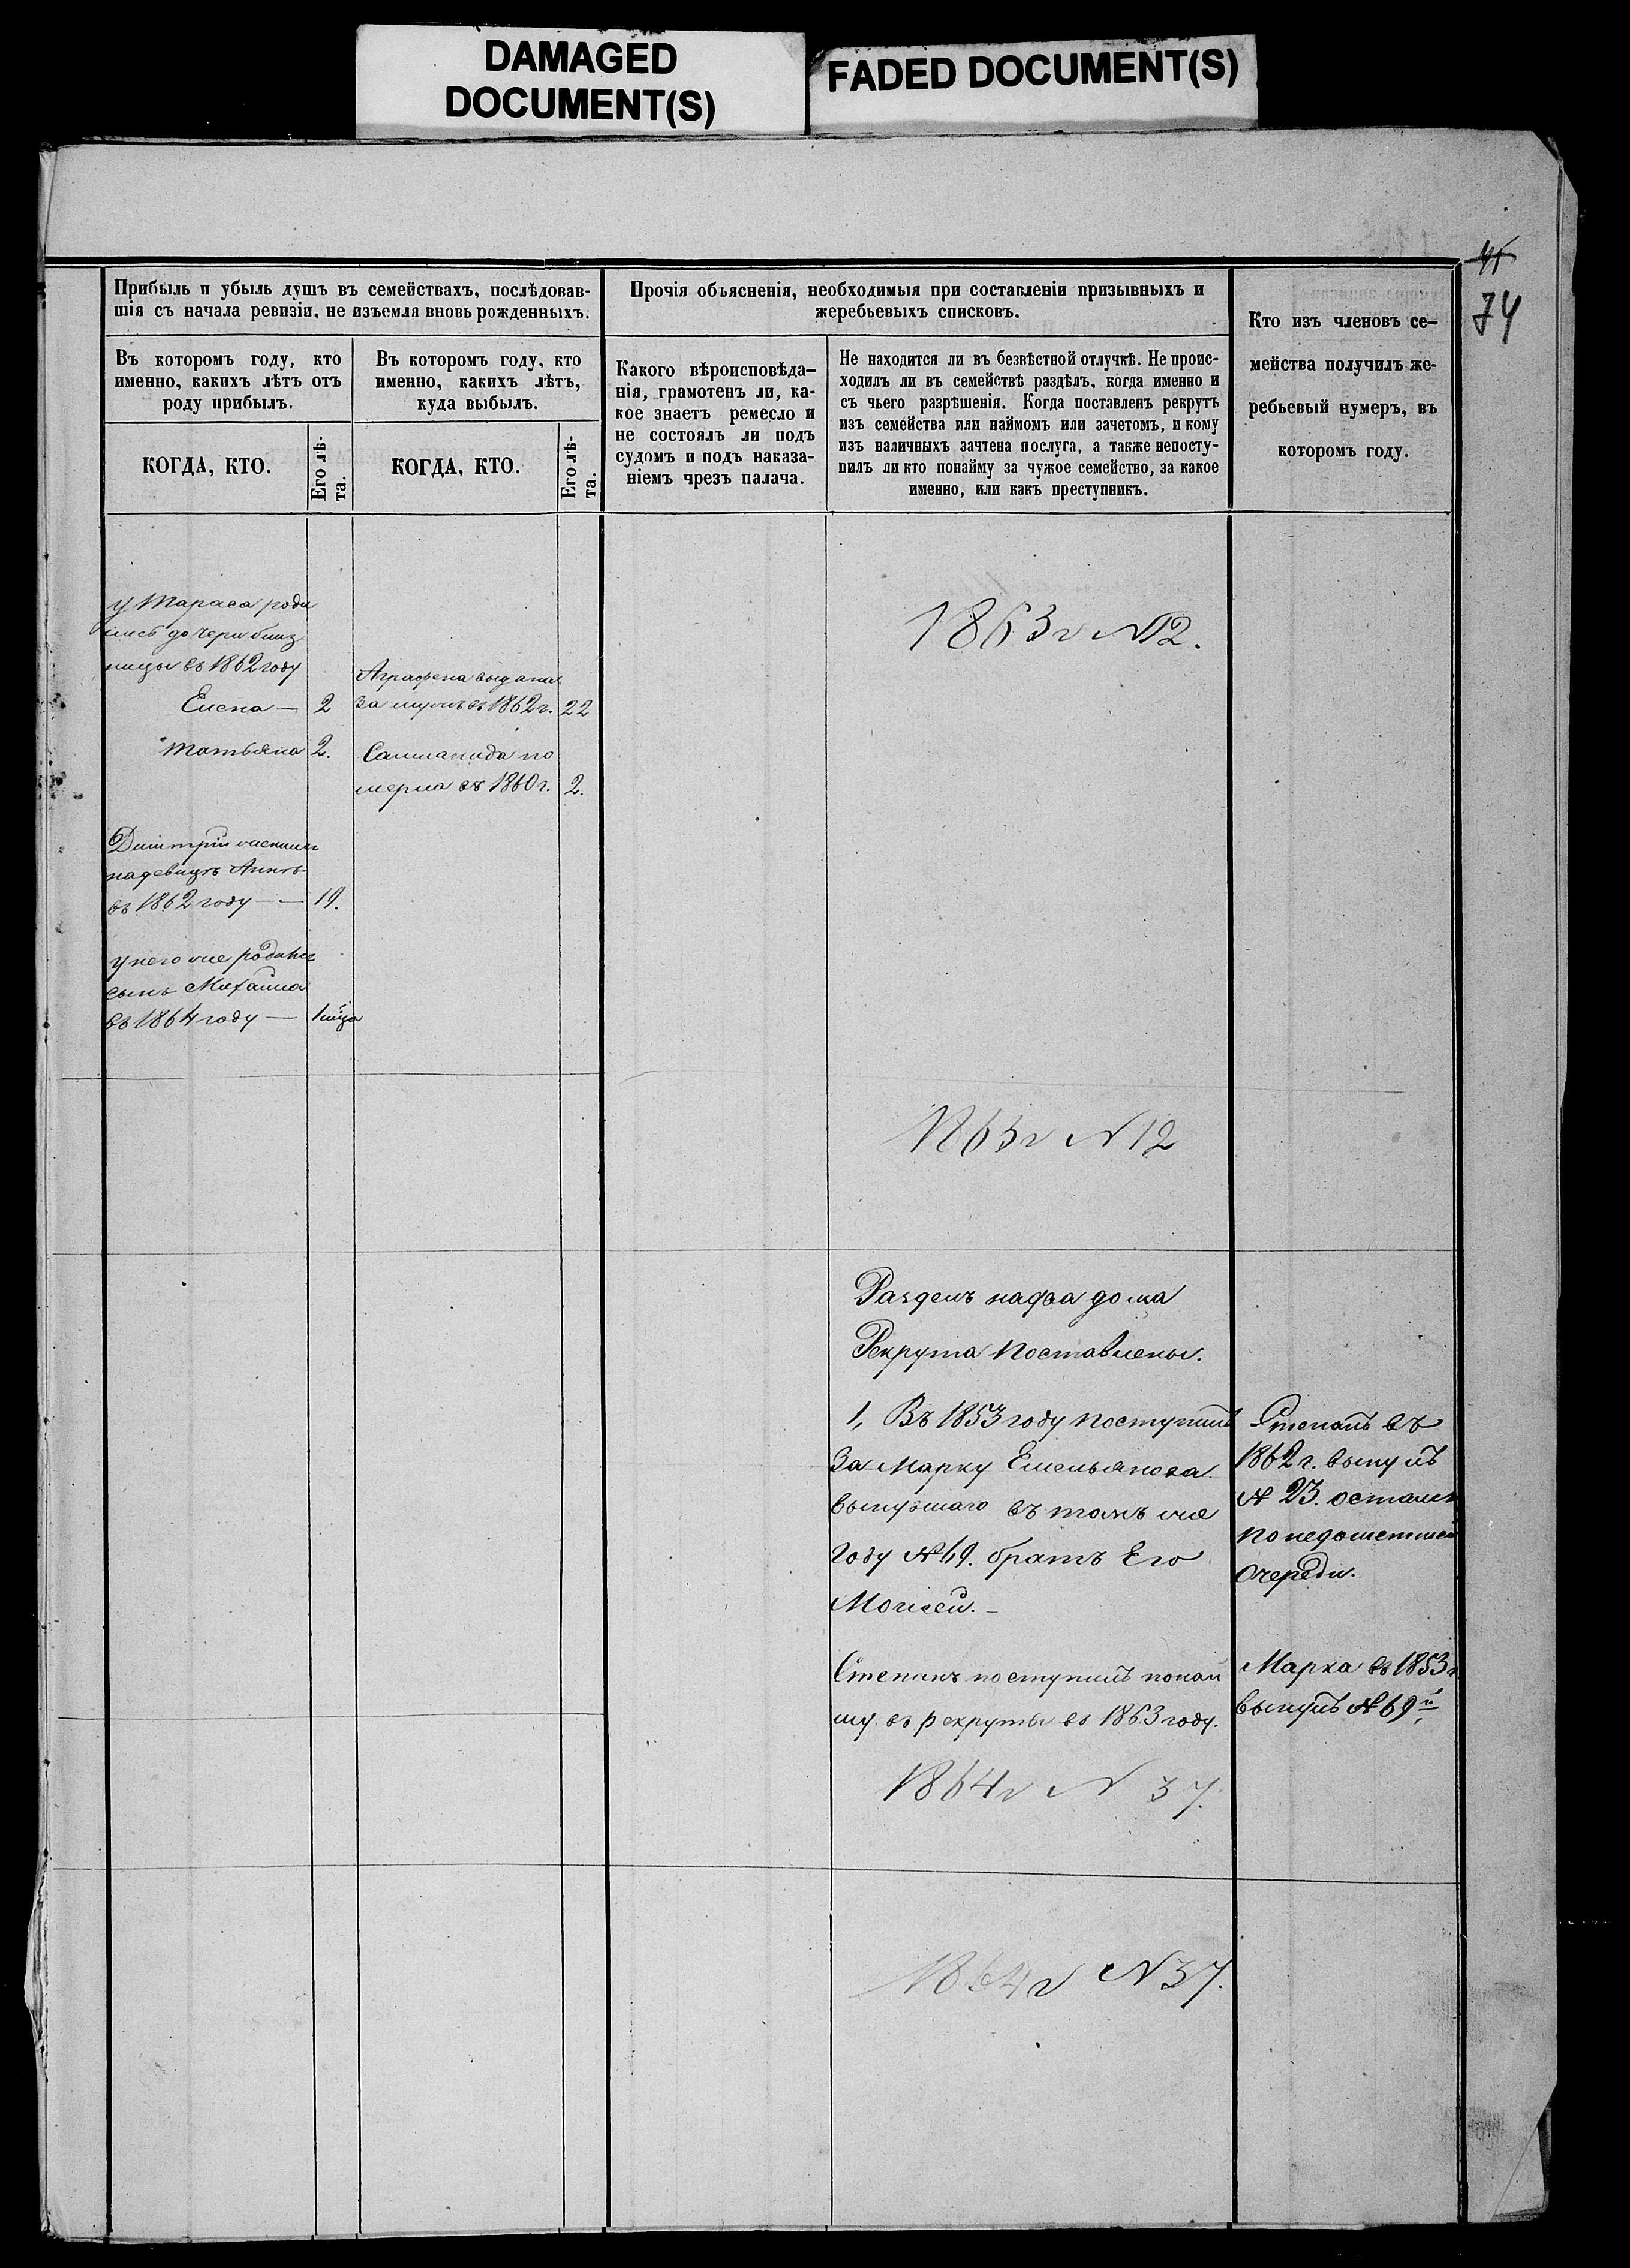 DAMAGED
DOCUMENT(S)
FADED DOCUMENT(S)
74
Прибыль и убыль душъ въ семействахъ, послѣдовав-
шія съ начала ревизіи, не изъемля вновь рожденныхъ.
Прочія объясненія, необходимыя при составленіи призывныхъ и
жеребьевыхъ списковъ.
Кто изъ членовъ се-
мейства получилъ же-
ребьевый нумеръ, въ
которомъ году.
Въ которомъ году, кто
именно, какихъ лѣтъ отъ
роду прибылъ.
Въ которомъ году, кто
именно, какихъ лѣтъ,
куда выбылъ.
Какого вѣроисповѣда-
нія, грамотенъ ли, ка-
кое знаетъ ремесло и
не состоялъ ли подъ
судомъ и подъ наказа-
ніемъ чрезъ палача.
Не находится ли въ безвѣстной отлучкѣ. Не проис-
ходилъ ли въ семействѣ раздѣлъ, когда именно и
съ чьего разрѣшенія. Когда поставленъ рекрутъ
изъ семейства или наймомъ или зачетомъ, и кому
изъ наличныхъ зачтена послуга, а также непосту-
пилъ ли кто понайму за чужое семейство, за какое
именно, или какъ преступникъ.
КОГДА, КТО.
Его лѣ-
та.
КОГДА, КТО.
Его лѣ-
та.
у Тараса роди
лись дочери близ
ницы въ 1862 году
Елена — 2
Татьяна 2.
Дмитрій женился
на девицѣ Аннѣ
въ 1862 году — 19.
у него же родился
сынъ Михаила
въ 1864 году — 1
Аграфена выдана
за мужъ въ 1862 г. 22
по
мерла въ 1860 г. 2.
1863 г N 12.
1863 г N 12
Разделъ на два дома
Рекрута поставлены.
1, Въ 1853 году поступилъ
За Марку Емельянова
вынувшаго въ томъ же
году № 69. братъ Его
Моисей. —
Степанъ поступилъ понай
му въ рекруты въ 1863 году.
1864 г N 37.
1864 г N 37.
Степанъ въ
1862 г. вынулъ
№ 23. остался
по недошетшей
очереди.
Марка въ 1853 г
вынулъ № 69й